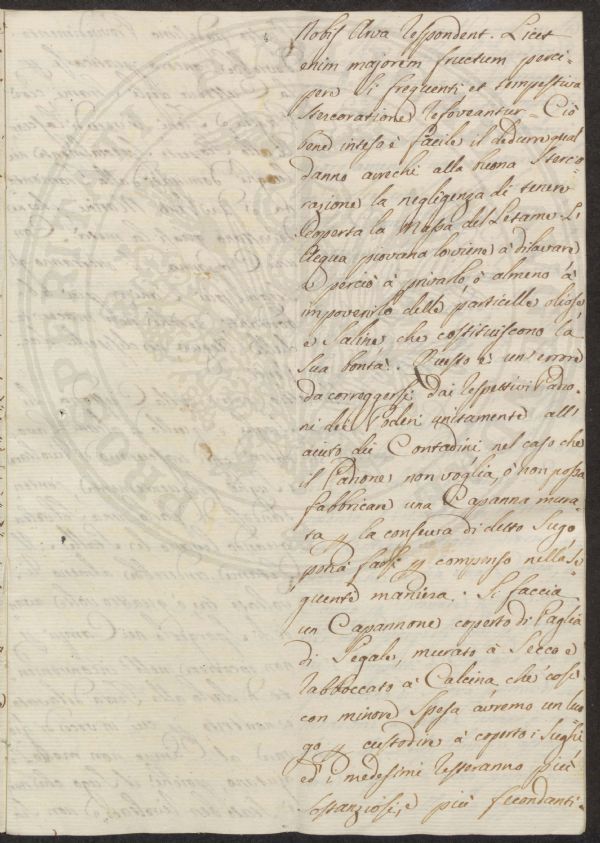 Nobis Arva respondent. Licet
enim majorem fructum perci-
pere si frequenti et tempestiva
stercoratione refoveantur = Ciò
bene inteso è facile il dedurre qual
danno arrechi alla buona sterco-
razione la negligenza di tenere
scoperta la massa del Letame. L'
Acqua piovana lo viene à dilavare
e perciò à privarlo, ò almeno à
impoverirlo delle particelle oliose
e saline, che costituiscono la
sua bontà. Questo è un'errore
da correggersi dai respettivi Padro-
ni dei Poderi unitamente all'
aiuto dei Contadini nel caso che
il Padrone non voglia, ò non possa
fabbricare una Capanna mura-
ta p la conserva di detto Sugo
potrà farsi p compenso nella se-
guente maniera. Si faccia
un Capannone coperto di Paglia
di Segale, murato à Secco e
rabboccato à Calcina che così
con minore spesa avremo un luo-
go p custodire à coperto i Sughi
ed i medesimi resteranno più
sostanziosi, e più fecondanti.